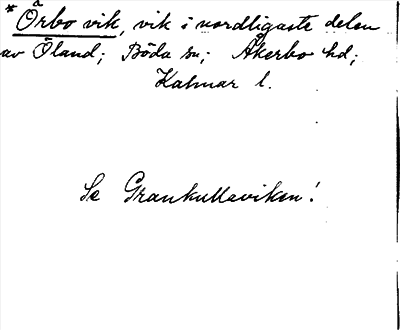 * Örbo vik, vik i nordligaste delen
av Öland; Böda sn; Åkerbo hd;
Kalmar l.
Se Grankullaviken!